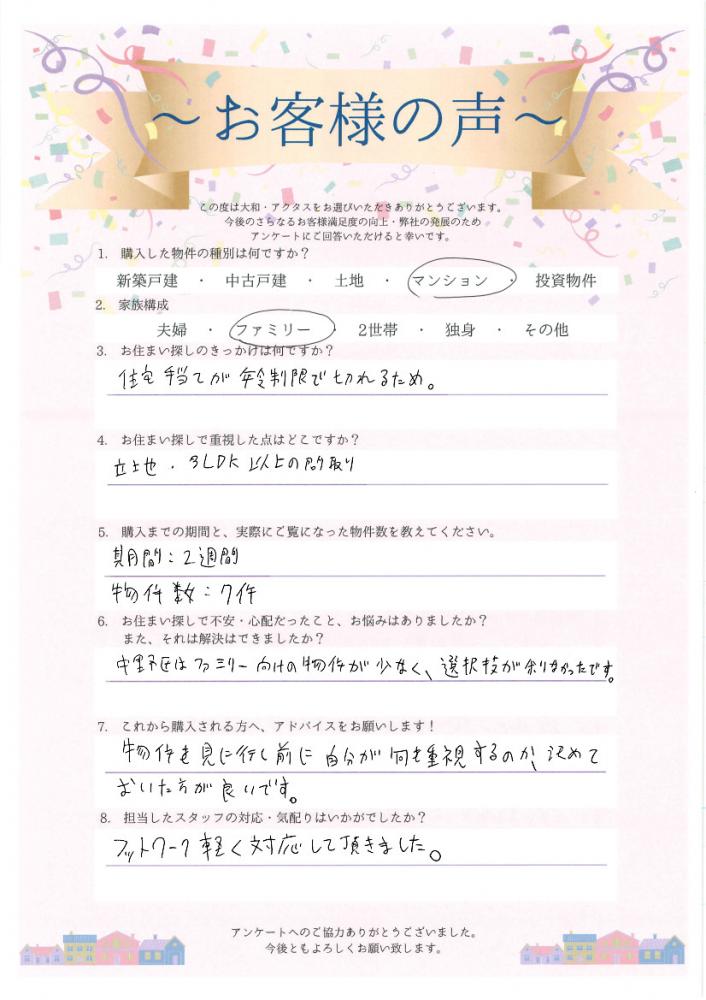 ～お客様の声～
この度は大和・アクタスをお選びいただきありがとうございます。
今後のさらなるお客様満足度の向上・弊社の発展のため
アンケートにご回答いただけると幸いです。
1. 購入した物件の種別は何ですか？
新築戸建 ・ 中古戸建 ・ 土地 ・ マンション ・ 投資物件
2. 家族構成
夫婦 ・ ファミリー ・ 2世帯 ・ 独身 ・ その他
3. お住まい探しのきっかけは何ですか？
住宅手当てが年令制限で切れるため。
4. お住まい探しで重視した点はどこですか？
立地・3LDK以上の間取り
5. 購入までの期間と、実際にご覧になった物件数を教えてください。
期間：2週間
物件数：7件
6. お住まい探しで不安・心配だったこと、お悩みはありましたか？
また、それは解決はできましたか？
中野区はファミリー向けの物件が少なく、選択枝が余りなかったです。
7. これから購入される方へ、アドバイスをお願いします！
物件を見に行く前に自分が何を重視するのか、決めて
おいた方が良いです。
8. 担当したスタッフの対応・気配りはいかがでしたか？
フットワーク軽く対応して頂きました。
アンケートへのご協力ありがとうございました。
今後ともよろしくお願い致します。